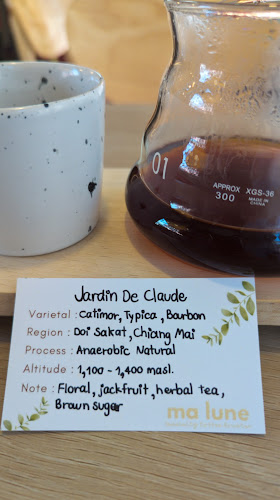 01
APPROX XGS-36
300 MADE IN
CHINA
Jardin De Claude
Varietal : Catimor, Typica, Bourbon
Region : Doi Sakat, Chiang Mai
Process : Anaerobic Natural
Altitude : 1,100 - 1,400 masl.
Note : Floral, jackfruit, herbal tea,
Brown sugar
ma lune